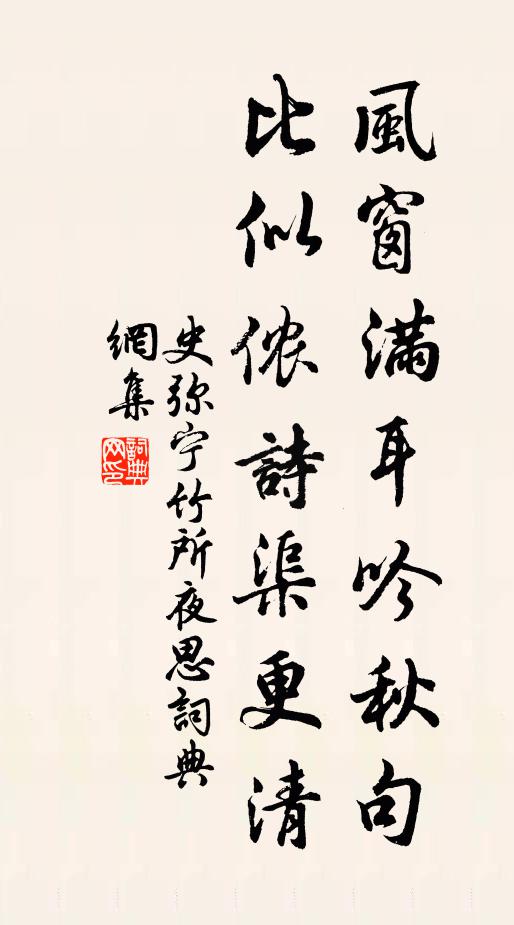 風窗滿耳吟秋句
比似侬詩渠更清
史弥宁竹所夜思詞典
網集
詞典网印